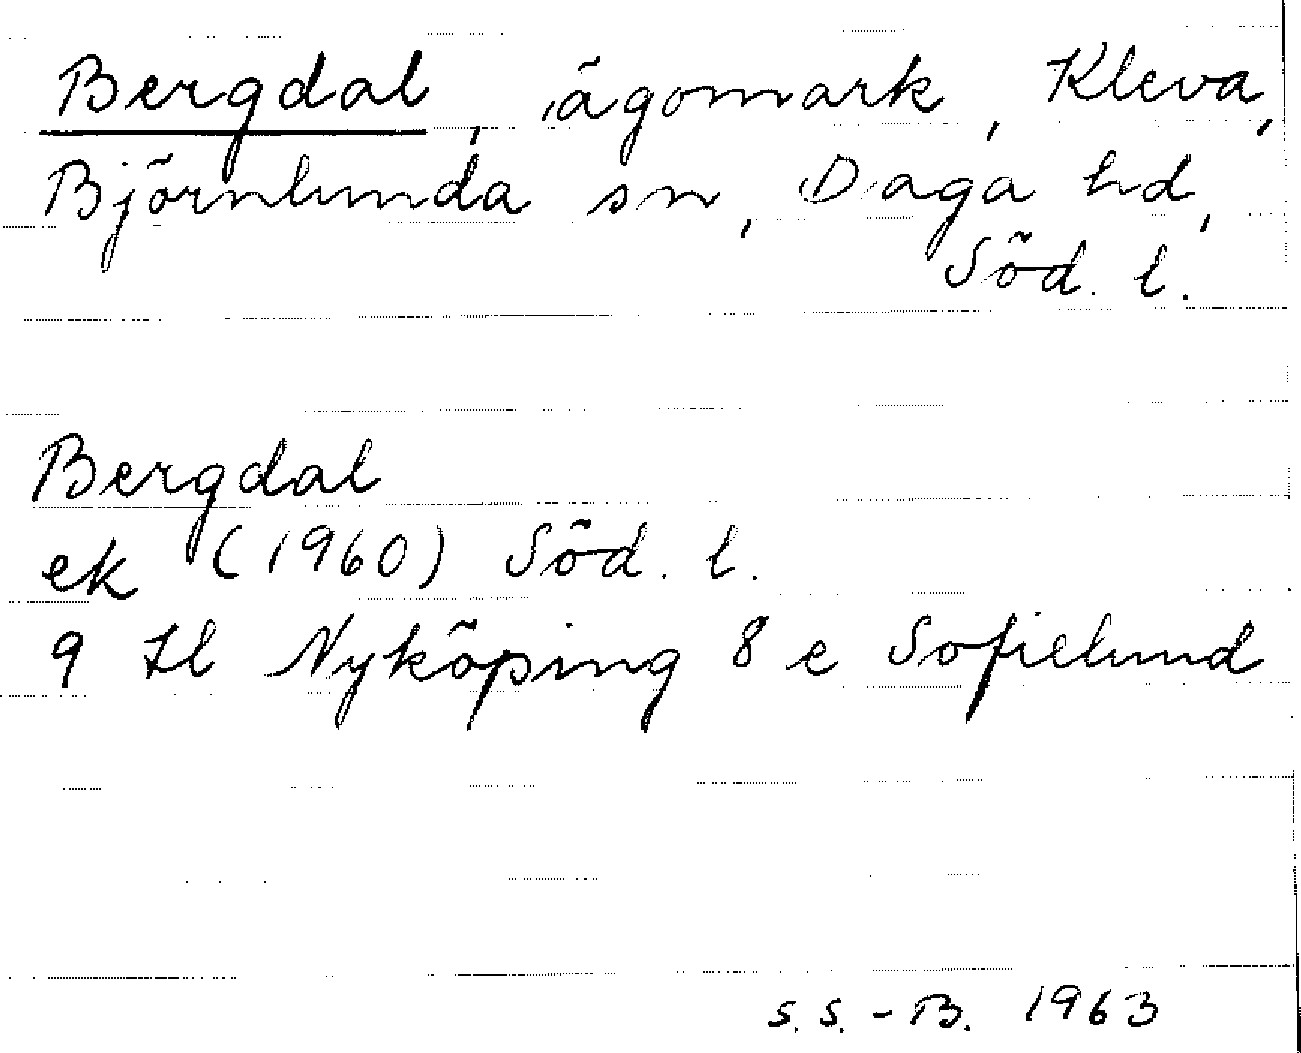 Bergdal, ägomark, Kleva,
Björnlunda sn, Daga hd,
Söd. l.
Bergdal
ek (1960) Söd. l.
9 H Nyköping 8 e Sofielund
S. S. - B. 1963